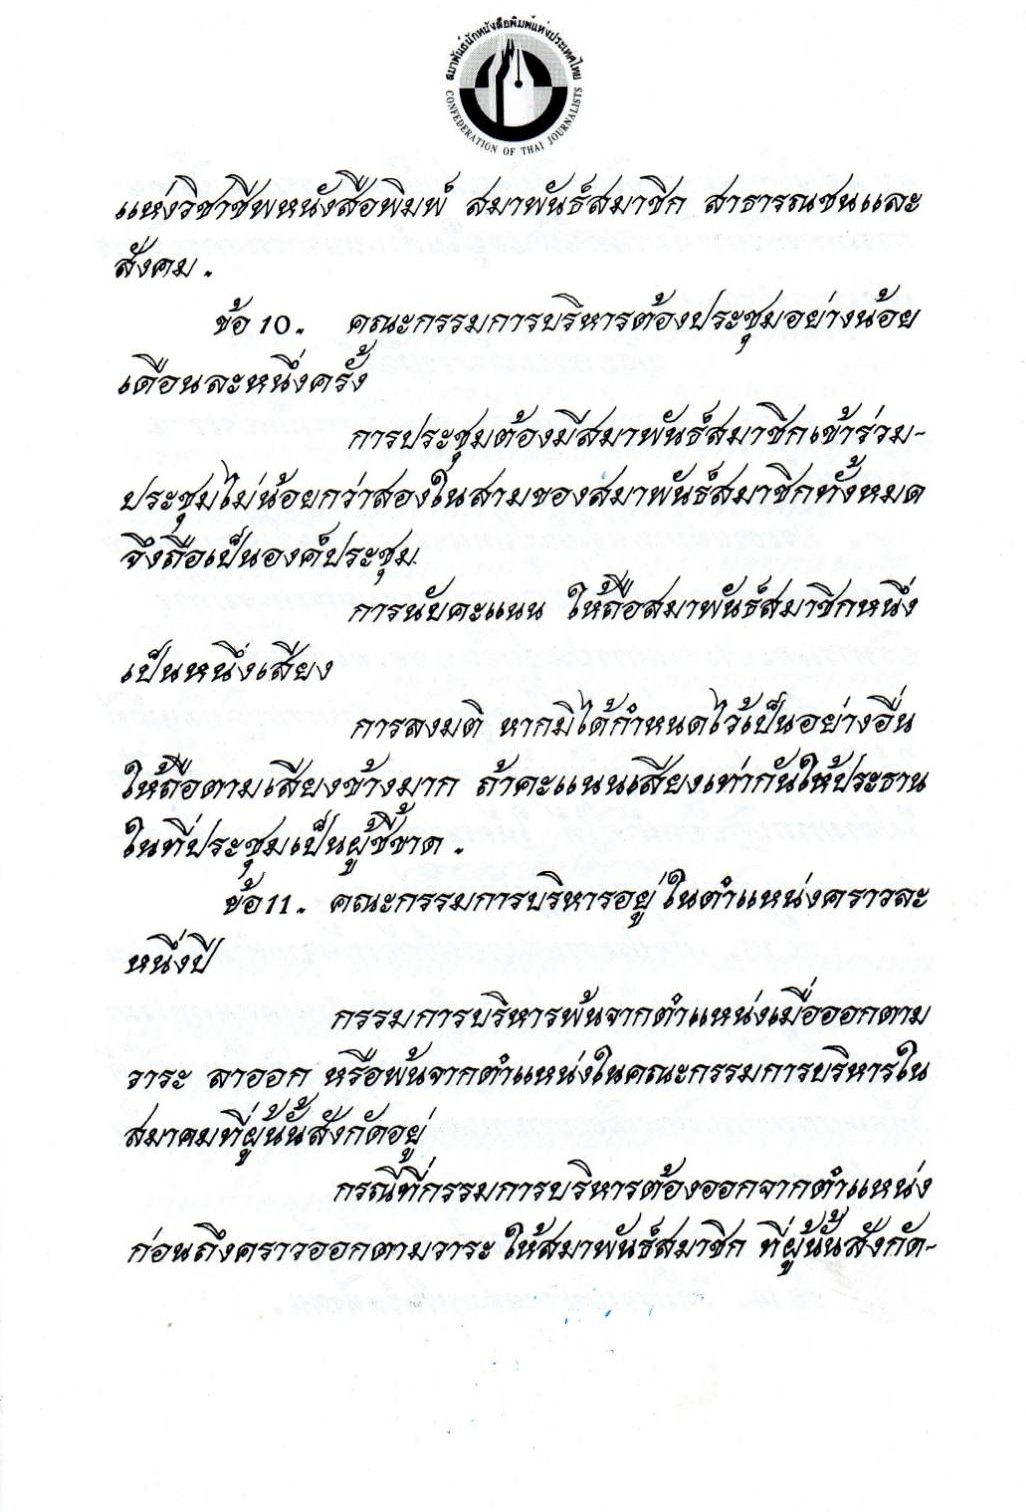 สมาพันธ์นักหนังสือพิมพ์แห่งประเทศไทย
CONFEDERATION OF THAI JOURNALISTS
แห่งวิชาชีพหนังสือพิมพ์ สมาพันธ์สมาชิก สาธารณชนและ
สังคม.
ข้อ 10. คณะกรรมการบริหารต้องประชุมอย่างน้อย
เดือนละหนึ่งครั้ง
การประชุมต้องมีสมาพันธ์สมาชิกเข้าร่วม-
ประชุมไม่น้อยกว่าสองในสามของสมาพันธ์สมาชิกทั้งหมด
จึงถือเป็นองค์ประชุม
การนับคะแนน ให้ถือสมาพันธ์สมาชิกหนึ่ง
เป็นหนึ่งเสียง
การลงมติ หากมิได้กำหนดไว้เป็นอย่างอื่น
ให้ถือตามเสียงข้างมาก ถ้าคะแนนเสียงเท่ากันให้ประธาน
ในที่ประชุมเป็นผู้ชี้ขาด.
ข้อ 11. คณะกรรมการบริหารอยู่ในตำแหน่งคราวละ
หนึ่งปี
กรรมการบริหารพ้นจากตำแหน่งเมื่อออกตาม
วาระ ลาออก หรือพ้นจากตำแหน่งในคณะกรรมการบริหารใน
สมาคมที่ผู้นั้นสังกัดอยู่
กรณีที่กรรมการบริหารต้องออกจากตำแหน่ง
ก่อนถึงคราวออกตามวาระ ให้สมาพันธ์สมาชิก ที่ผู้นั้นสังกัด-